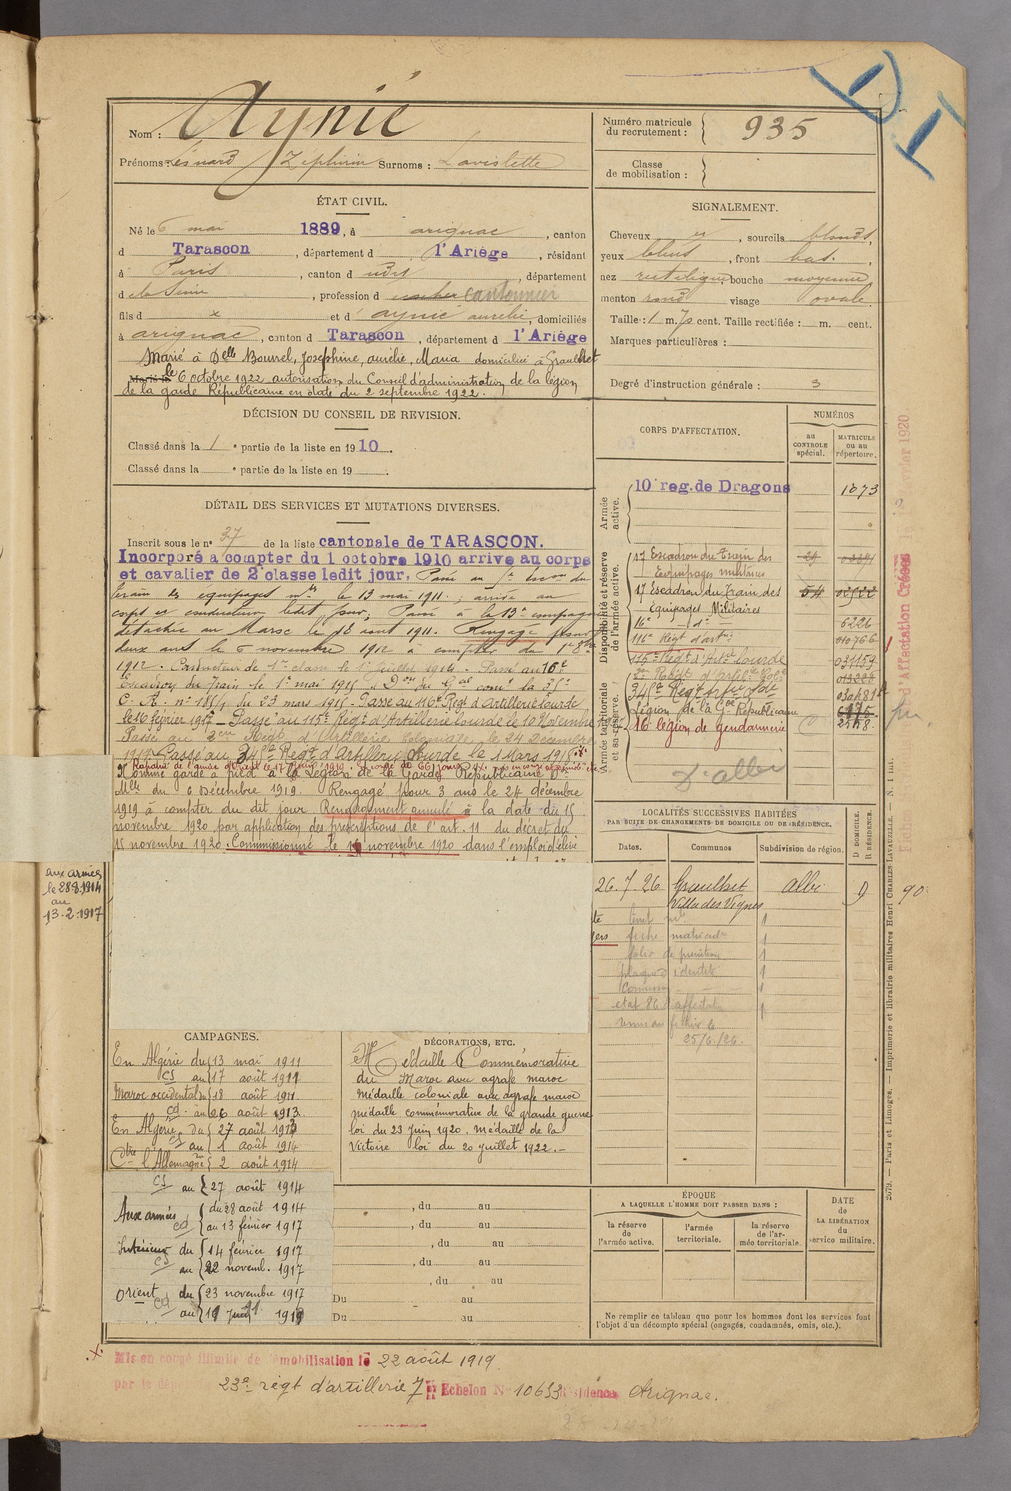 Nom : Aynié
Prénoms : Zéphirin Surnoms : Laviolette
Numéro matricule
du recrutement : 935
Classe
de mobilisation :
ÉTAT CIVIL.
Né le 6 mai 1889, à arignac, canton
d Tarascon, département d l'Ariège, résidant
à Paris, canton d udit, département
d e la Seine, profession d cocher cantonnier
fils d x et d aynié aurélie, domiciliés
à arignac, canton d Tarascon, département d l'Ariège
Marié à Delle Bourrel, Joséphine, aurélie, Maria domiciliée à Graulhet
le 6 octobre 1922 autorisation du Conseil d'administration de la légion
de la garde Républicaine en date du 2 septembre 1922.
SIGNALEMENT.
Cheveux et, sourcils blonds,
yeux bleus, front bas.
nez rectiligne, bouche moyenne
menton rond visage ovale.
Taille : 1 m. 70 cent. Taille rectifiée : m. cent.
Marques particulières :
Degré d'instruction générale : 3
DÉCISION DU CONSEIL DE REVISION.
Classé dans la 1 e partie de la liste en 1910.
Classé dans la e partie de la liste en 19 .
DÉTAIL DES SERVICES ET MUTATIONS DIVERSES.
Inscrit sous le n° 37 de la liste cantonale de TARASCON.
Incorporé à compter du 1 octobre 1910 arrivé au corps
et cavalier de 2e classe ledit jour. Passé au
train des équipages mres le 13 mai 1911 ; arrivé au
corps et conducteur ledit jour. Passé à la 13e compagnie
détachée au Maroc le 18 août 1911. Rengagé pour
deux ans le 6 novembre 1912 à compter du
1912. Conducteur de 1re classe le 1er juillet 1914. Passé au 16e
Escadron du Train le 1er mai 1915
C. A. n° du 23 mars 1915. Passé au 116e Régt d'artillerie Lourde
le 16 février 1917. Passé au 115e Régt d'Artillerie Lourde le 10 Novembre
Passé au 2e Régt d'Artillerie Coloniale, le 24 Décembre
1917. Passé au 345e Régt d'Artillerie Lourde le 1 Mars 1918.
Nommé garde à pied à la Légion de la Garde Républicaine
Mlle du 6 Décembre 1919. Rengagé pour 3 ans le 24 décembre
1919 à compter du dit jour. Rengagement annulé à la date du 15
novembre 1920 par application des prescriptions de l'art. 11 du décret du
15 novembre 1920. Commissionné le 16 novembre 1920 dans l'emploi d'élève
aux armées
le 28.8.1914
au
13.2.1917
CORPS D'AFFECTATION.
NUMÉROS
au
CONTROLE
spécial.
MATRICULE
ou au
répertoire.
Armée
active.
10e reg. de Dragons 1073
Disponibilité et réserve
de l'armée active.
17 Escadron du Train des
Equipages militaires
17 Escadron du Train des 54
Equipages Militaires
16e — d° — 6226
116e Régt d'art. 010766
115e Régt d'Art. Lourde 031159
2e Régt d'Artie Cole
Armée territoriale
et sa réserve.
345e Régt Artie Lde
Légion de la Gde Républicaine
16e légion de gendarmerie
D. albi
LOCALITÉS SUCCESSIVES HABITÉES
PAR SUITE DE CHANGEMENTS DE DOMICILE OU DE RÉSIDENCE.
Dates. Communes Subdivision de région. D DOMICILE. R RÉSIDENCE.
26.7.26 Graulhet Albi D
Villa des Vignes
livret mle 1
fiche matricule 1
folio de punitions 1
plaque d'identité 1
Commission 1
état 86 d'affectation 1
25/6/26.
90
CAMPAGNES.
En Algérie du 13 mai 1911
cs au 17 août 1911
Maroc occidental du 18 août 1911
cd au 26 août 1913
En Algérie du 27 août 1913
cs au 1 août 1914
Ctre l'Allemagne 2 août 1914
cs au 27 août 1914
Aux armées du 28 août 1914
cd au 13 février 1917
Intérieur du 14 février 1917
cs au 22 novemb. 1917
Orient du 23 novembre 1917
cd au 19 juin 1919
DÉCORATIONS, ETC.
Médaille Commémorative
du Maroc avec agrafe maroc
médaille coloniale avec agrafe maroc
médaille commémorative de la grande guerre
loi du 23 juin 1920. médaille de la
Victoire loi du 20 juillet 1922.
, du au
, du au
, du au
, du au
, du au
Du au
Du au
ÉPOQUE
A LAQUELLE L'HOMME DOIT PASSER DANS :
la réserve
de
l'armée active.
l'armée
territoriale.
la réserve
de l'ar-
mée territoriale.
DATE
de
LA LIBÉRATION
du
service militaire.
Ne remplir ce tableau que pour les hommes dont les services font
l'objet d'un décompte spécial (engagés, condamnés, omis, etc.).
Mis en congé illimité de démobilisation le 22 août 1919
par le dépôt 23e régt d'artillerie 7e Echelon N° 10653 Résidence Arignac.
2079. — Paris et Limoges. — Imprimerie et librairie militaires Henri CHARLES-LAVAUZELLE. — N. 1 int.